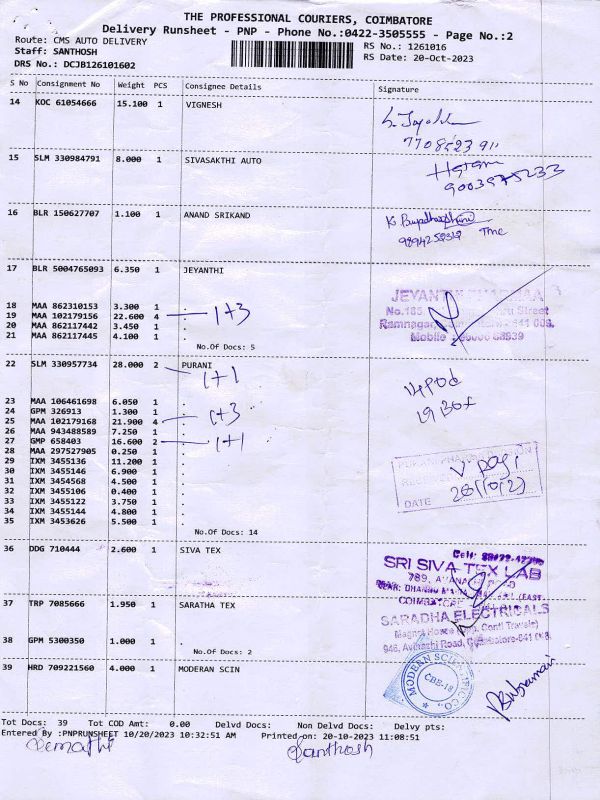 THE PROFESSIONAL COURIERS, COIMBATORE
Delivery Runsheet - PNP - Phone No.:0422-3505555 - Page No.:2
Route: CMS AUTO DELIVERY
RS No.: 1261016
Staff: SANTHOSH
RS Date: 20-Oct-2023
DRS No.: DCJB126101602
S No Consignment No Weight PCS Consignee Details Signature
14 KOC 61054666 15.100 1 VIGNESH
15 SLM 330984791 8.000 1 SIVASAKTHI AUTO
9003975233
16 BLR 150627707 1.100 1 ANAND SRIKAND
17 BLR 5004765093 6.350 1 JEYANTHI
18 MAA 862310153 3.300 1 .
19 MAA 102179156 22.600 4 . 1+3
20 MAA 862117442 3.450 1 .
21 MAA 862117445 4.100 1 .
No.Of Docs: 5
JEYANTHI
No.185
Street
Ramnagar
Mobile
22 SLM 330957734 28.000 2 PURANI
1+1
23 MAA 106461698 6.050 1 .
24 GPM 326913 1.300 1 .
25 MAA 102179168 21.900 4 . 1+3
26 MAA 943488589 7.250 1 .
27 GMP 658403 16.600 2 . 1+1
28 MAA 297527905 0.250 1 .
29 IXM 3455136 11.200 1 .
30 IXM 3455146 6.900 1 .
31 IXM 3454568 4.500 1 .
32 IXM 3455106 0.400 1 .
33 IXM 3455122 3.750 1 .
34 IXM 3455144 4.800 1 .
35 IXM 3453626 5.500 1 .
No.Of Docs: 14
14 POd
19 Box
DATE
36 DDG 710444 2.600 1 SIVA TEX
SRI SIVA TEX LAB
37 TRP 7085666 1.950 1 SARATHA TEX
38 GPM 5300350 1.000 1 .
No.Of Docs: 2
SARADHA ELECTRICALS
946, Avinashi Road,
39 HRD 709221560 4.000 1 MODERAN SCIN
MODERN
CBE-18
Tot Docs: 39 Tot COD Amt: 0.00 Delvd Docs: Non Delvd Docs: Delvy pts:
Entered By :PNPRUNSHEET 10/20/2023 10:32:51 AM Printed on: 20-10-2023 11:08:51
Santhosh